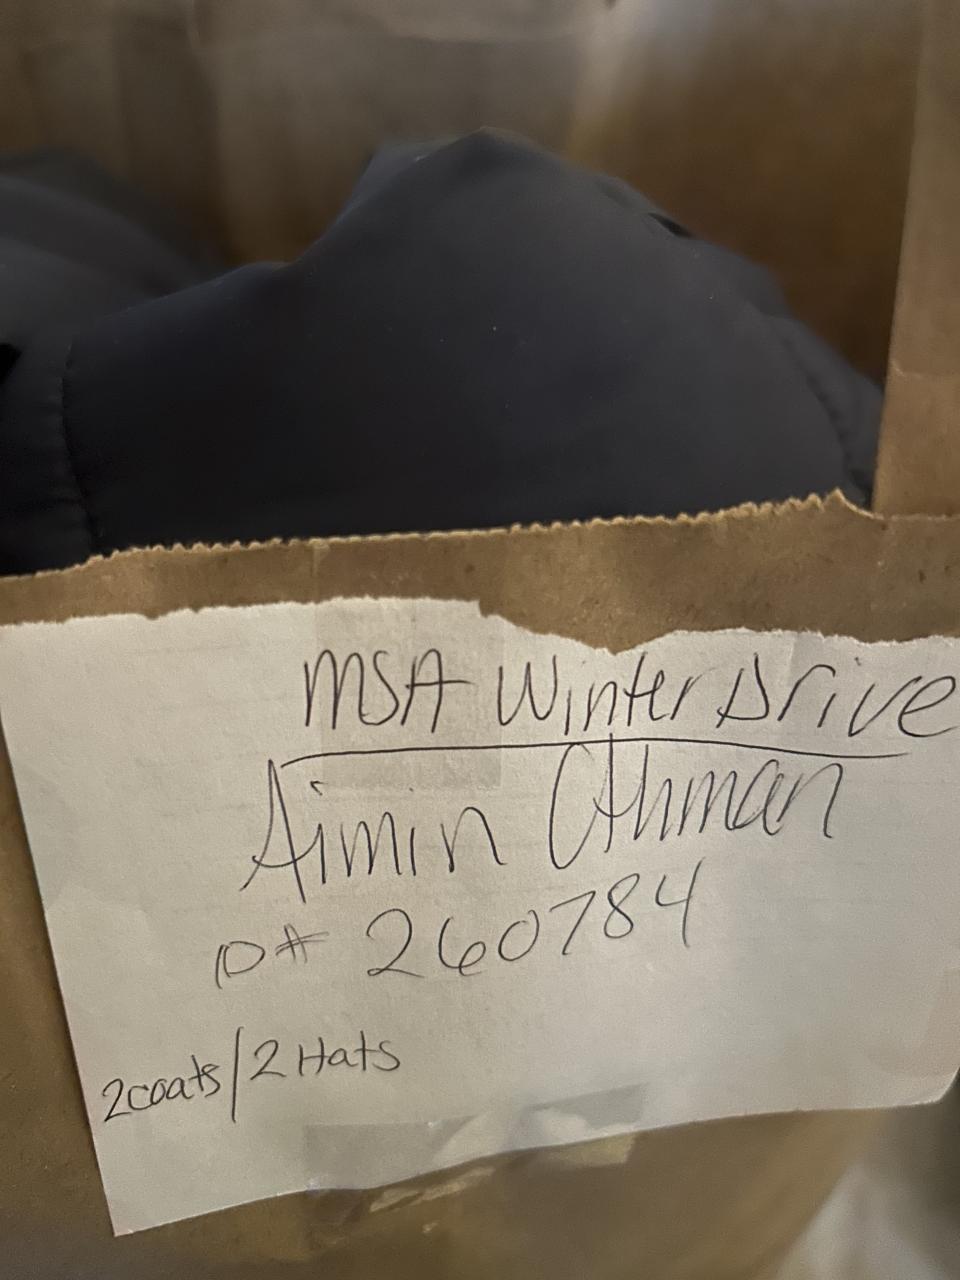 MSA Winter Drive
Aimin Othman
ID# 260784
2coats/2 Hats